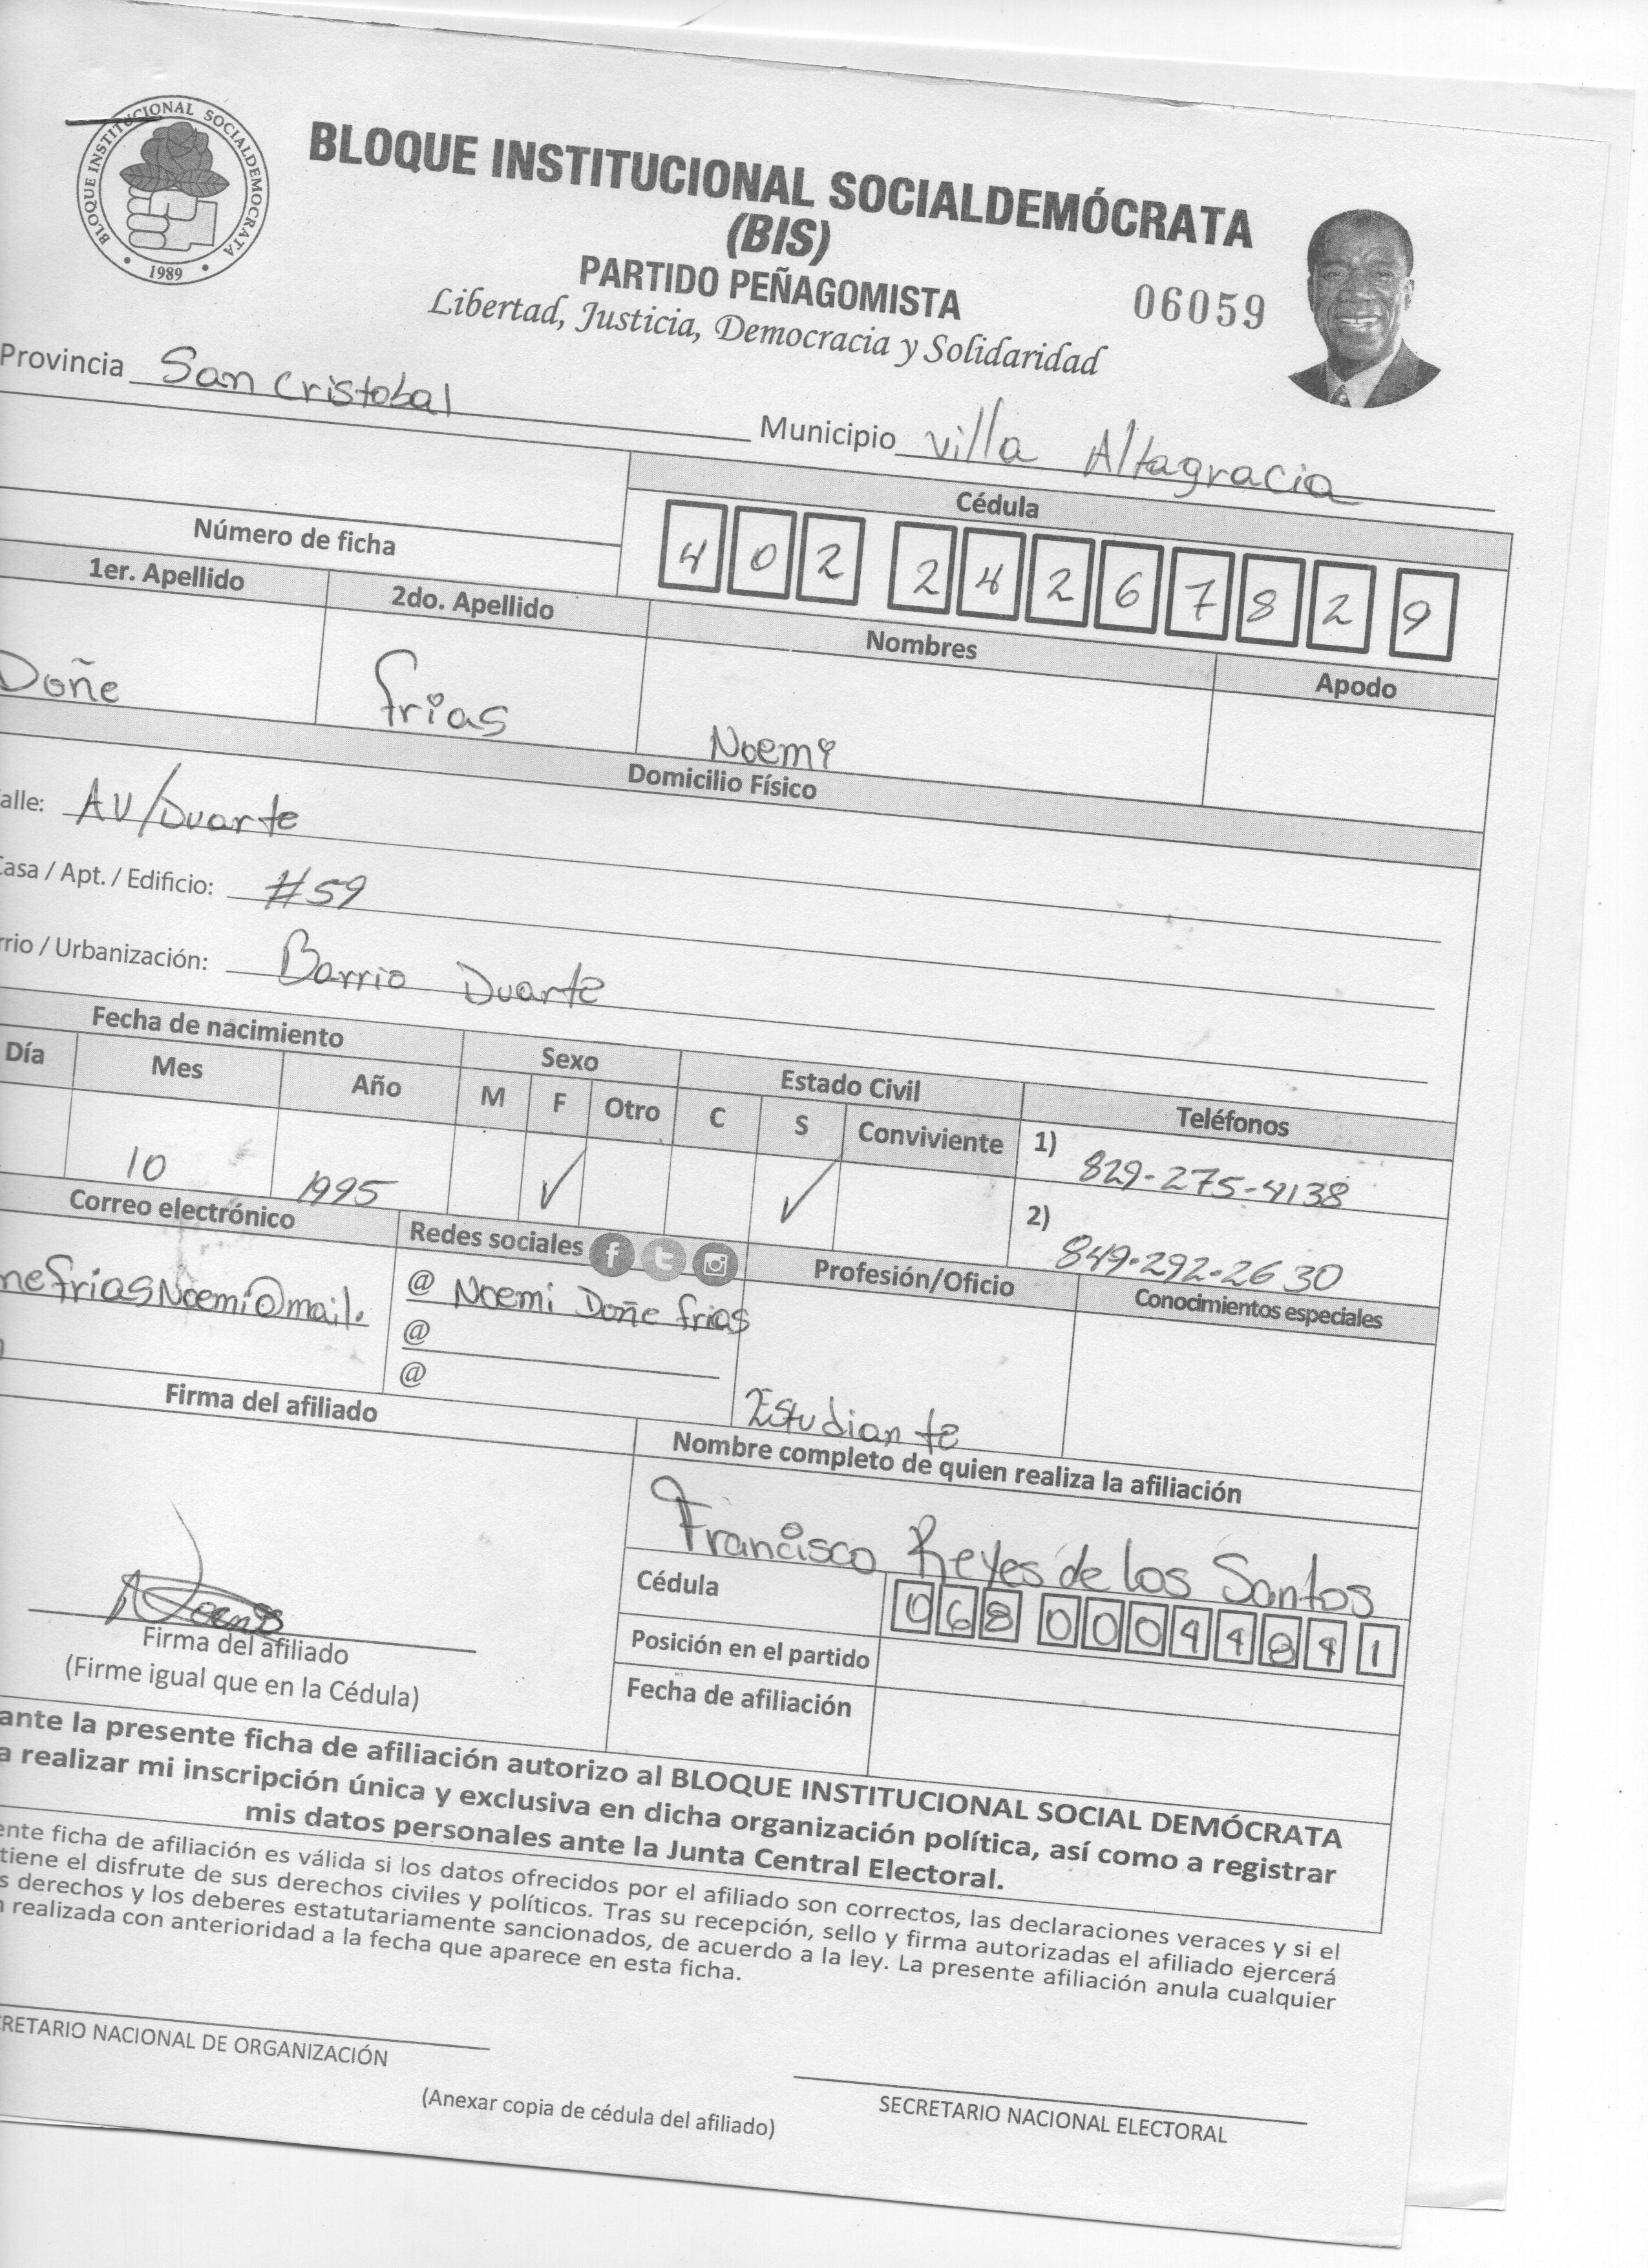 BLOQUE INSTITUCIONAL SOCIALDEMOCRATA
1989
BLOQUE INSTITUCIONAL SOCIALDEMÓCRATA
(BIS)
PARTIDO PEÑAGOMISTA
06059
Libertad, Justicia, Democracia y Solidaridad
Provincia San Cristobal
Municipio Villa Altagracia
Número de ficha
Cédula
4 0 2 2 4 2 6 7 8 2 9
1er. Apellido 2do. Apellido Nombres Apodo
Doñe Frias Noemi
Domicilio Físico
alle: AV/Duarte
Casa / Apt. / Edificio: #59
rrio / Urbanización: Barrio Duarte
Fecha de nacimiento Sexo Estado Civil Teléfonos
Día Mes Año M F Otro C S Conviviente
10 1995 ✓ ✓
1) 829-275-4138
2) 849-292-2630
Correo electrónico Redes sociales Profesión/Oficio Conocimientos especiales
nefriasNoemi@mail.
@ Noemi Doñe frias
@
@
Estudiante
Firma del afiliado
Nombre completo de quien realiza la afiliación
Francisco Reyes de los Santos
Cédula 0 6 8 0 0 0 4 4 8 4 1
Posición en el partido
Fecha de afiliación
Firma del afiliado
(Firme igual que en la Cédula)
ante la presente ficha de afiliación autorizo al BLOQUE INSTITUCIONAL SOCIAL DEMÓCRATA
a realizar mi inscripción única y exclusiva en dicha organización política, así como a registrar
mis datos personales ante la Junta Central Electoral.
ente ficha de afiliación es válida si los datos ofrecidos por el afiliado son correctos, las declaraciones veraces y si el
tiene el disfrute de sus derechos civiles y políticos. Tras su recepción, sello y firma autorizadas el afiliado ejercerá
s derechos y los deberes estatutariamente sancionados, de acuerdo a la ley. La presente afiliación anula cualquier
n realizada con anterioridad a la fecha que aparece en esta ficha.
CRETARIO NACIONAL DE ORGANIZACIÓN
(Anexar copia de cédula del afiliado)
SECRETARIO NACIONAL ELECTORAL